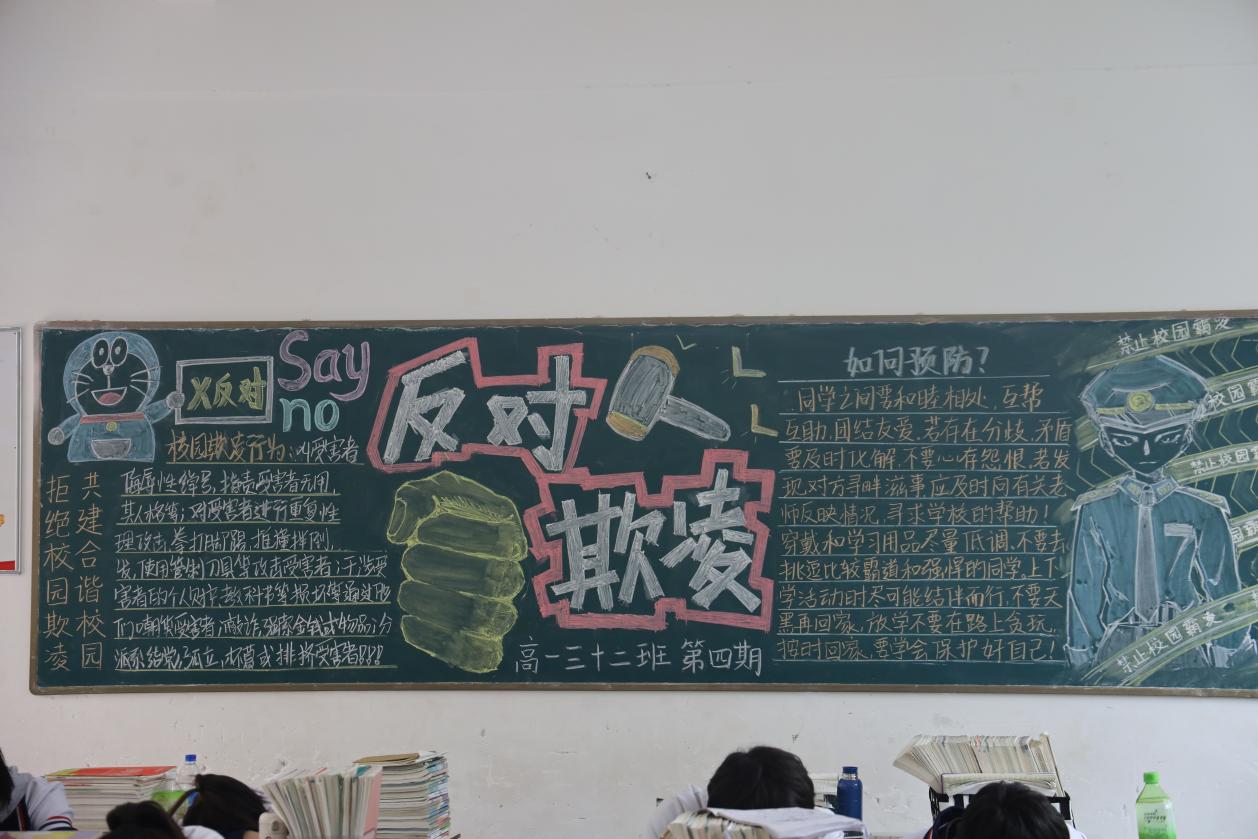 X反对
Say
no
校园欺凌行为:叫受害者
侮辱性绰号,指责受害者无用
其人格等;对受害者进行重复性
理攻击,拳打脚踢、推撞绊倒
发,使用管制刀具等攻击受害者;干涉受
害者的个人财产,教科书等,损坏等通过
们嘲笑受害者;敲诈,强索金钱或物品;分
派系结党,孤立、杯葛或排挤受害者!!!
拒绝校园欺凌
共建合谐校园
反对
欺凌
高一三十二班 第四期
如何预防?
同学之间要和睦相处,互帮
互助,团结友爱,若存在分歧,矛盾
要及时化解,不要心存怨恨,若发
现对方寻衅滋事应及时向有关老
师反映情况,寻求学校的帮助!
穿戴和学习用品尽量低调,不要去
挑逗比较霸道和强悍的同学,上下
学活动时尽可能结伴而行,不要天
黑再回家,放学不要在路上贪玩,
按时回家,要学会保护好自己!
禁止校园霸凌
校园
禁止校园霸
禁止校园霸凌